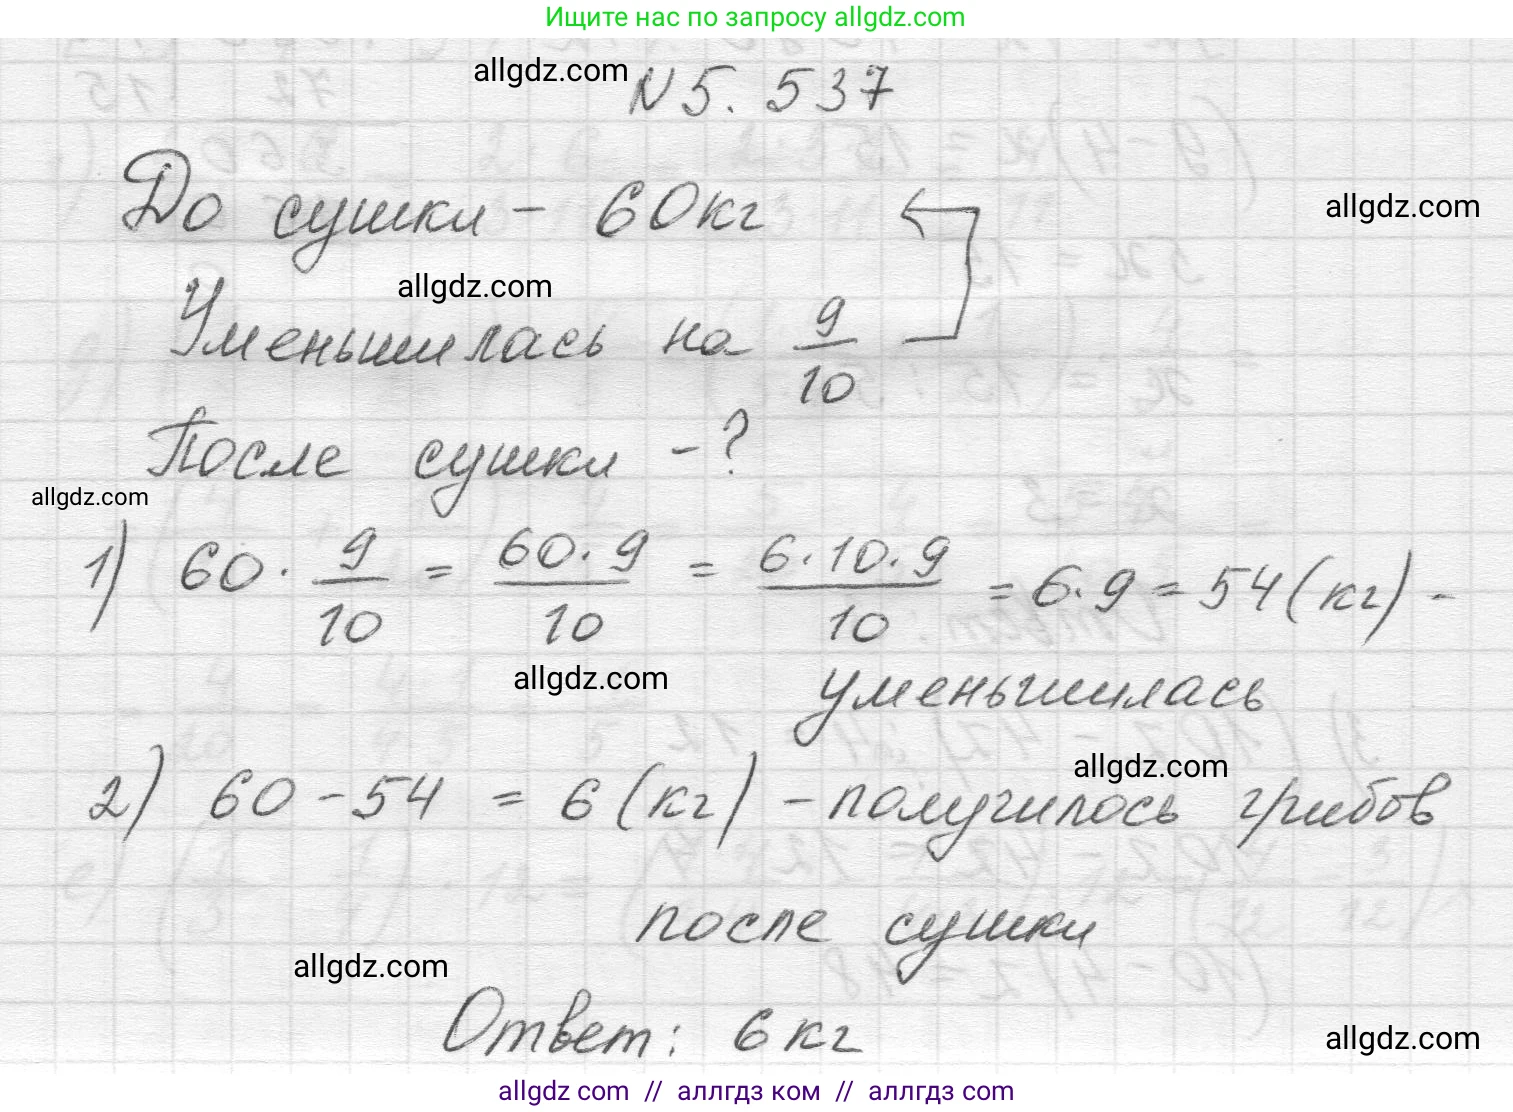 Ищите нас по запросу allgdz.com
allgdz.com
N 5. 537
До сушки - 60кг
allgdz.com
allgdz.com
Уменьшилась на 9/10
После сушки - ?
allgdz.com
1) 60 · 9/10 = 60·9/10 = 6·10·9/10 = 6·9 = 54 (кг) -
allgdz.com
уменьшилась
allgdz.com
2) 60 - 54 = 6 (кг) - получилось грибов
после сушки
allgdz.com
Ответ: 6 кг
allgdz.com
allgdz com // аллгдз ком // аллгдз com